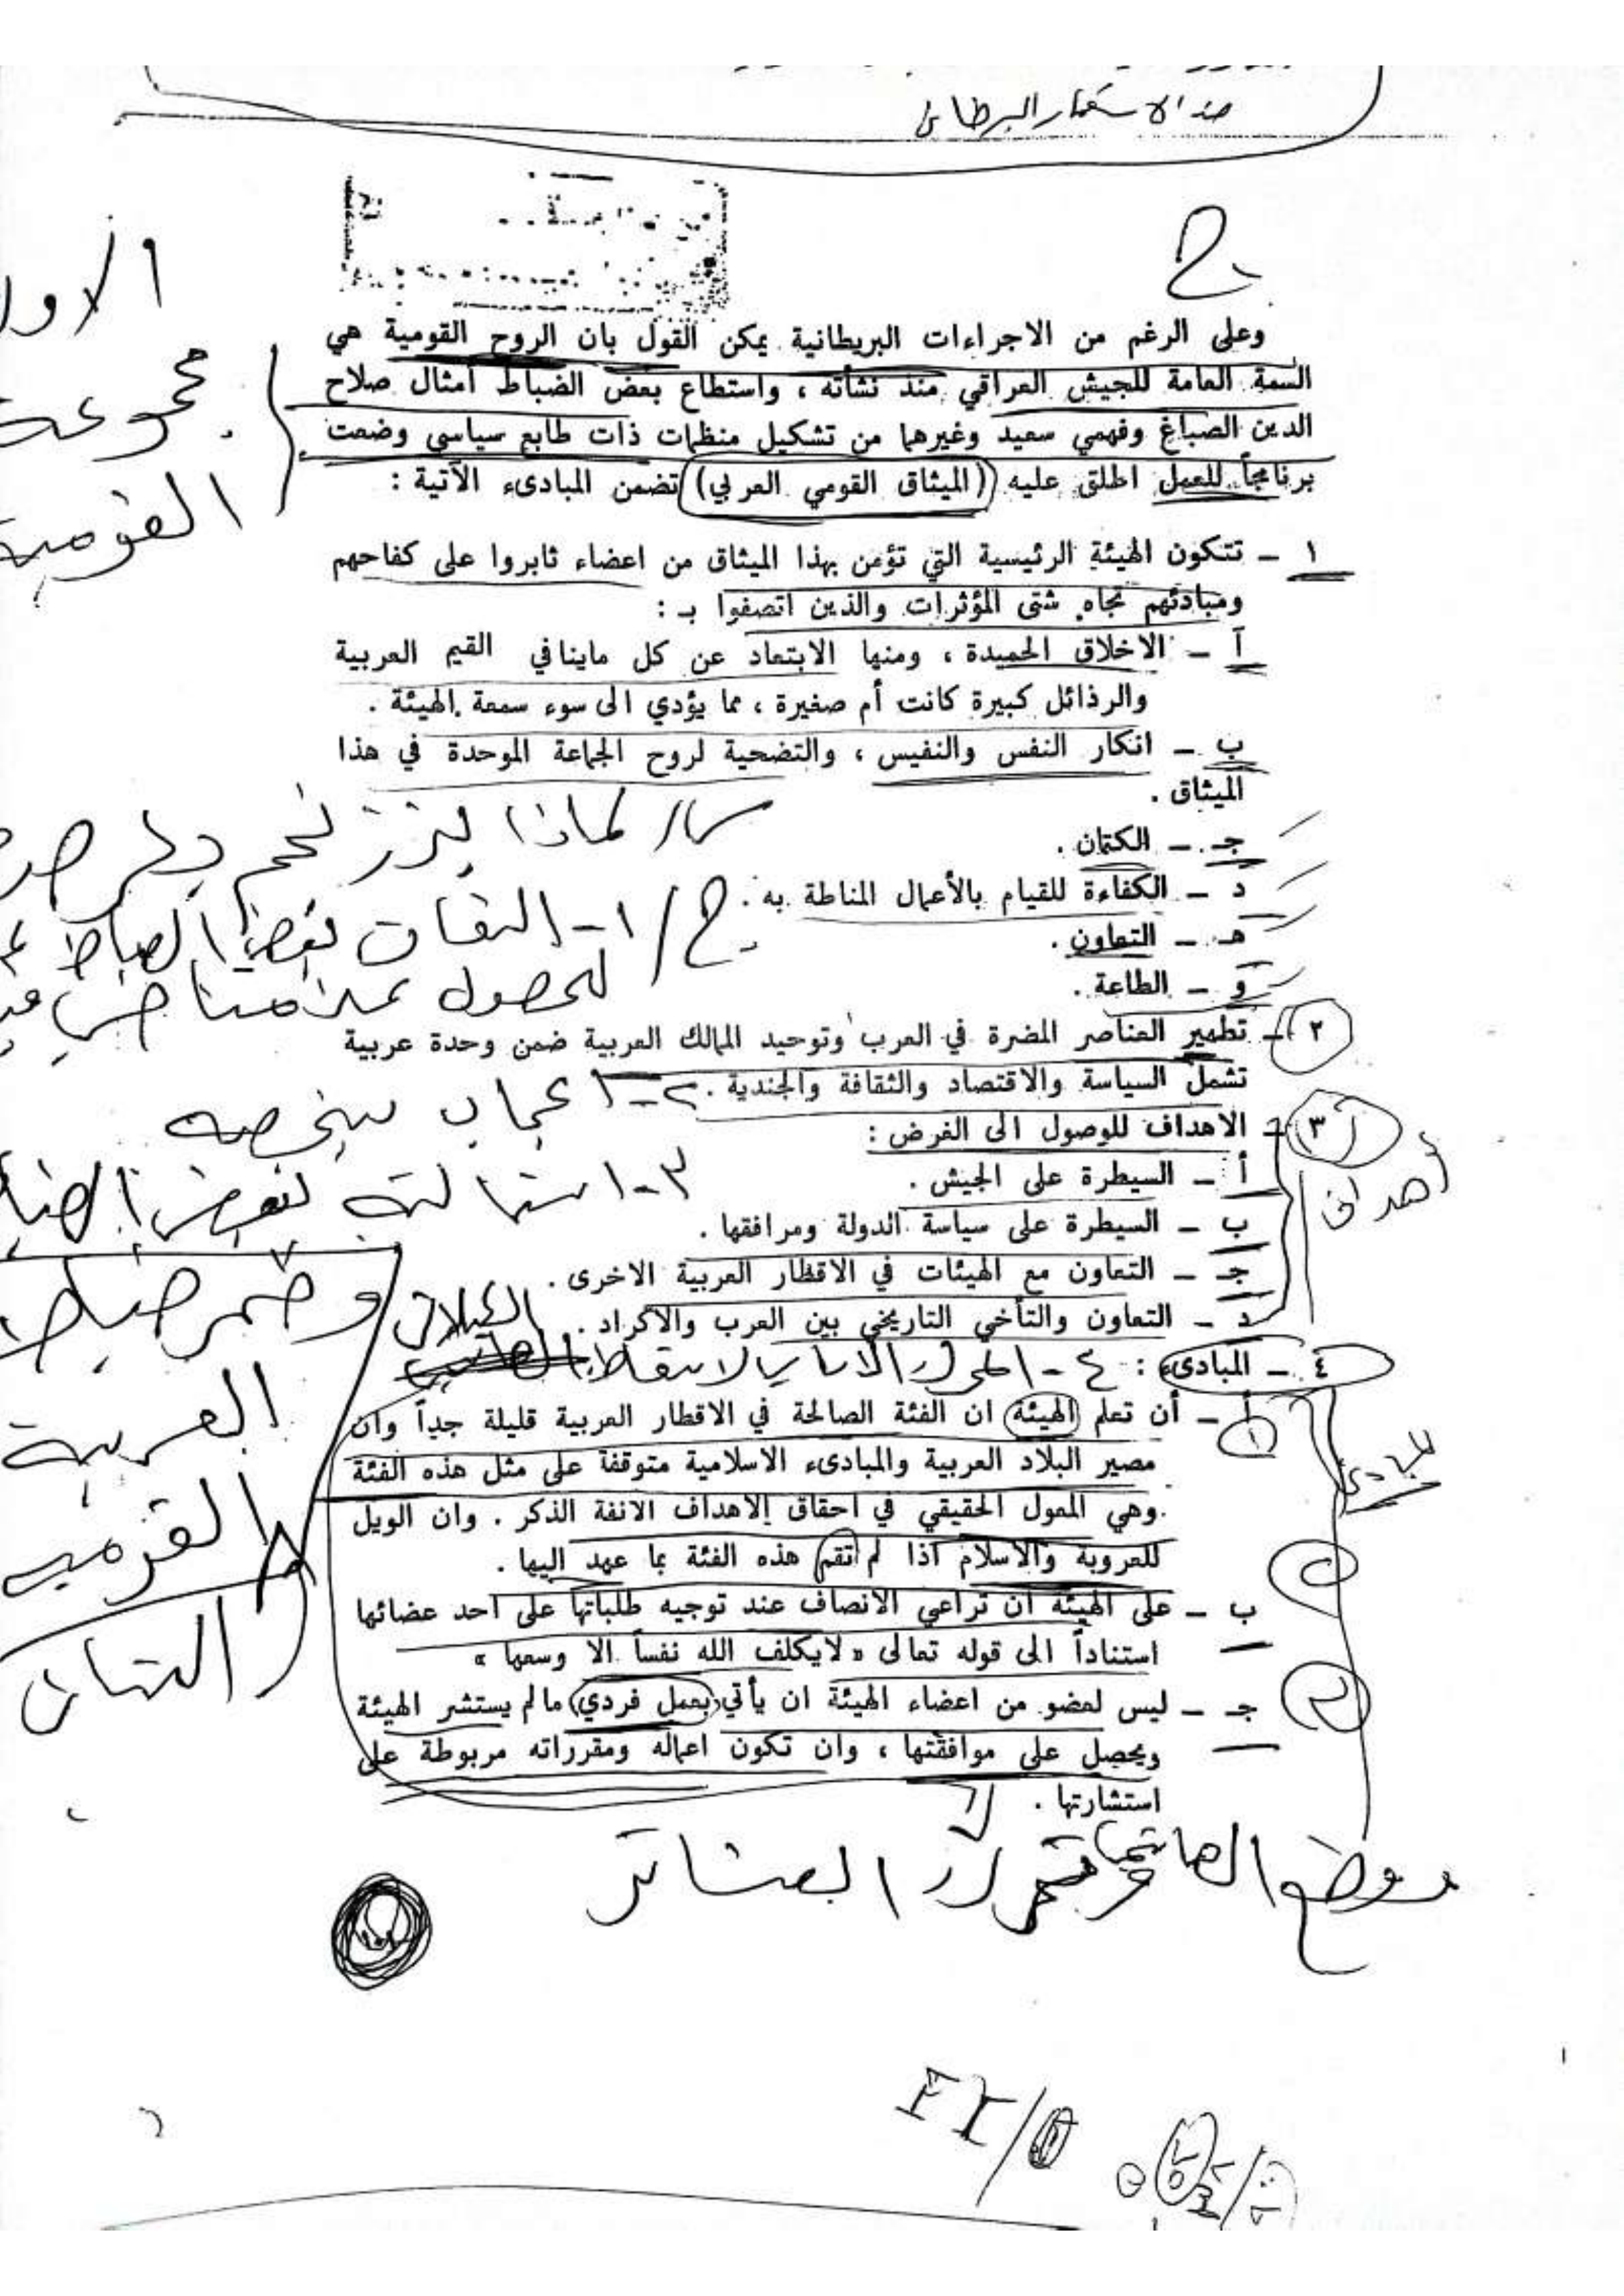 ضد الاستعمار البريطاني
ج
الاول
مجموعة
القومية
وعلى الرغم من الاجراءات البريطانية يمكن القول بان الروح القومية هي
السمة العامة للجيش العراقي منذ نشأته ، واستطاع بعض الضباط امثال صلاح
الدين الصباغ وفهمي سعيد وغيرهما من تشكيل منظمات ذات طابع سياسي وضعت
برنامجاً للعمل اطلق عليه (الميثاق القومي العربي) تضمن المبادىء الآتية :
١ – تتكون الهيئة الرئيسية التي تؤمن بهذا الميثاق من اعضاء ثابروا على كفاحهم
ومبادئهم تجاه شتى المؤثرات والذين اتصفوا بـ :
آ – الاخلاق الحميدة ، ومنها الابتعاد عن كل ماينافي القيم العربية
والرذائل كبيرة كانت أم صغيرة ، مما يؤدي الى سوء سمعة الهيئة .
ب – انكار النفس والنفيس ، والتضحية لروح الجماعة الموحدة في هذا
الميثاق .
س// لماذا برز نجم بكر
جـ – الكتمان .
د – الكفاءة للقيام بالأعمال المناطة به .
ج/ ١- التفات بعض الضباط
هـ – التعاون .
للحصول على مناصب
و – الطاعة .
٢ – تطهير العناصر المضرة في العرب وتوحيد الممالك العربية ضمن وحدة عربية
تشمل السياسة والاقتصاد والثقافة والجندية .
٢- اعجاب بشخصه
٣ – الاهداف للوصول الى الغرض :
أهداف
أ – السيطرة على الجيش .
٣- استمالته لبعض
ب – السيطرة على سياسة الدولة ومرافقها .
جـ – التعاون مع الهيئات في الاقطار العربية الاخرى .
وضم ضباط
د – التعاون والتأخي التاريخي بين العرب والأكراد .
٤ – المبادىء :
العربية
القومية
الثاني
أ – أن تعلم الهيئة ان الفئة الصالحة في الاقطار العربية قليلة جداً وان
مصير البلاد العربية والمبادىء الاسلامية متوقفة على مثل هذه الفئة
وهي المعول الحقيقي في احقاق الاهداف الانفة الذكر . وان الويل
للعروبة والاسلام اذا لم تقم هذه الفئة بما عهد اليها .
مبادئ
ب – على الهيئة ان تراعي الانصاف عند توجيه طلباتها على احد عضائها
استناداً الى قوله تعالى « لايكلف الله نفساً الا وسعها »
جـ – ليس لعضو من اعضاء الهيئة ان يأتي بعمل فردي مالم يستشر الهيئة
ويحصل على موافقتها ، وان تكون اعماله ومقرراته مربوطة على
استشارتها .
العشائر